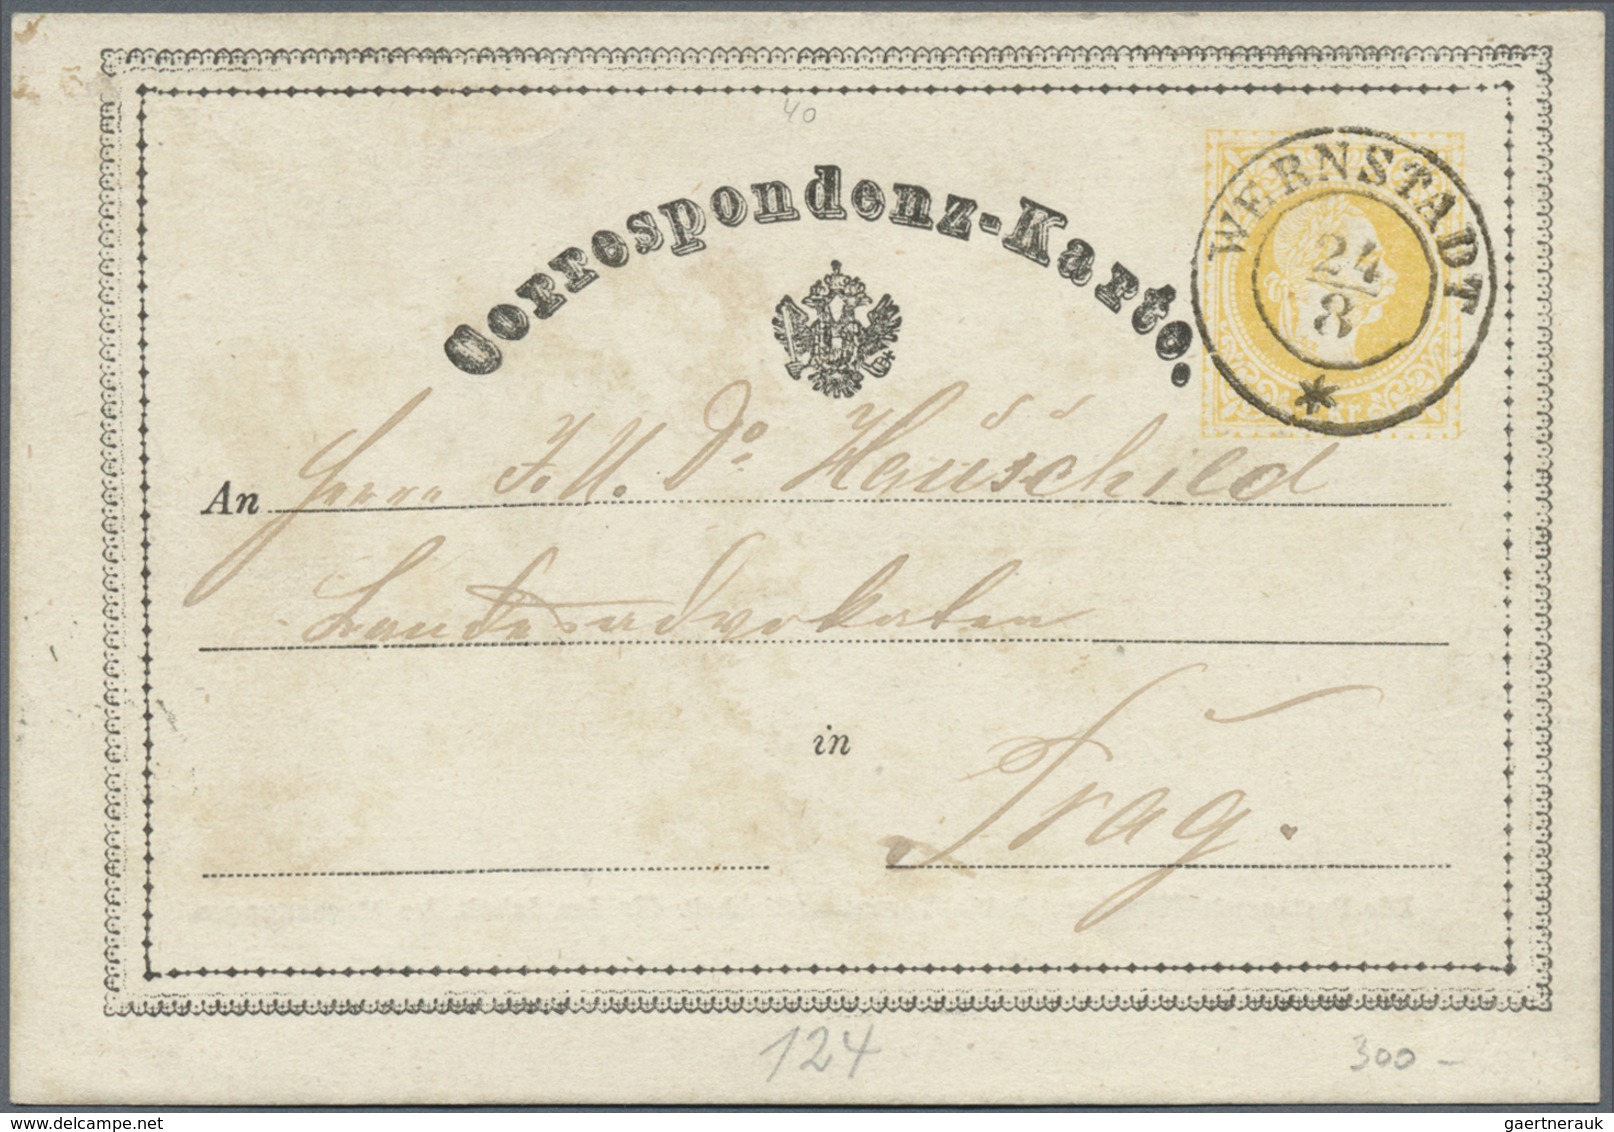 40
Correspondenz-Karte.
WERNSTADT
24
8
*
Kr.
An Herrn J. U. Dr. Hauschild
Landesadvokaten
in
Prag.
124
300 –
gaertnerauk @ delcampe.net